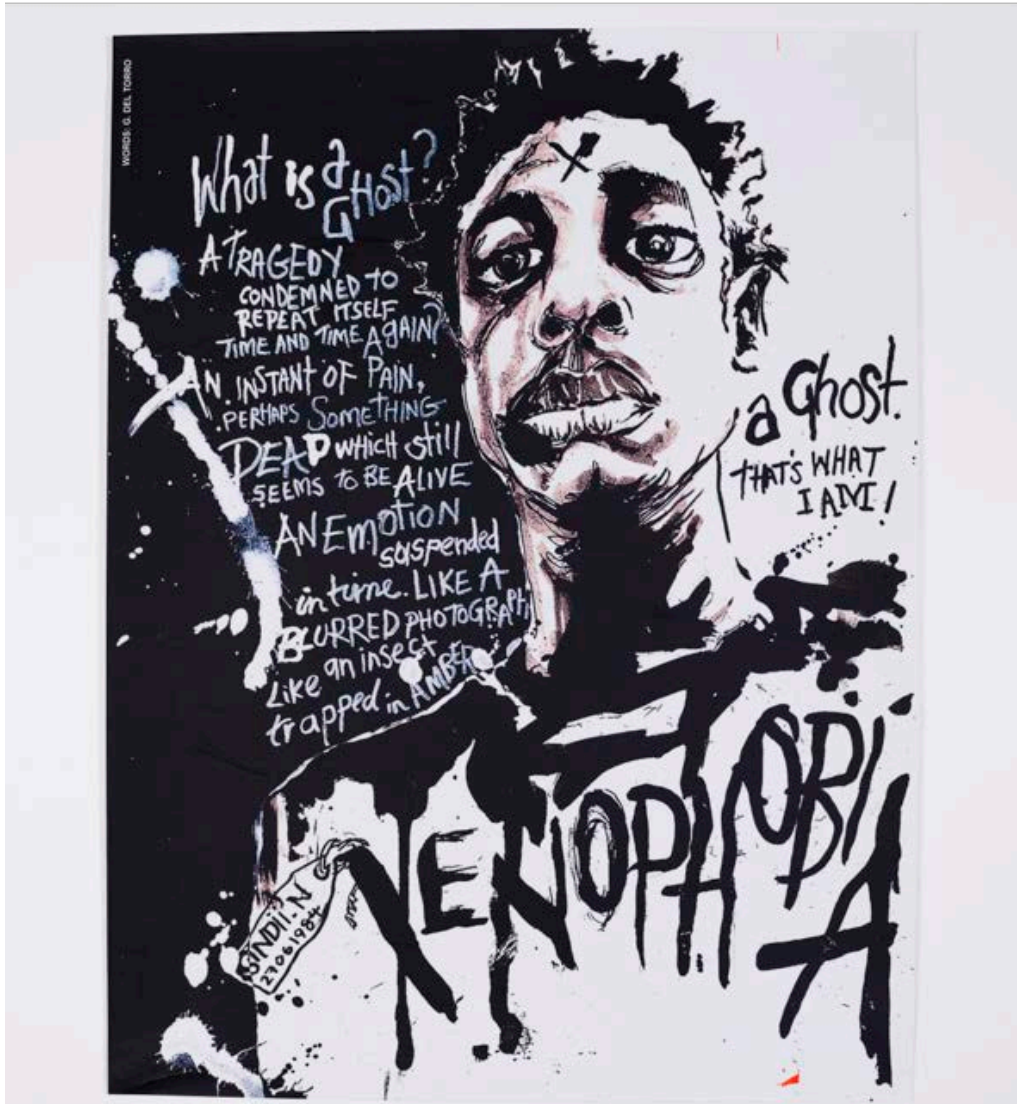 WORDS: G. DEL TORRO
What is a
GHOST?
A TRAGEDY
CONDEMNED TO
REPEAT ITSELF
TIME AND TIME AGAIN?
AN INSTANT OF PAIN,
PERHAPS SOMETHING
DEAD WHICH still
SEEMS TO BE ALIVE
AN EMOTION
suspended
in time. LIKE A
BLURRED PHOTOGRAPH
Like an insect
trapped in AMBER
a Ghost.
THAT'S WHAT
I AM!
XENOPHOBIA
SINDII.N
27061984